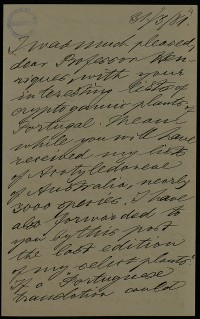 31/3/81.
I was much pleased,
dear Professor Hen-
riques, with your
interesting lists of
cryptogamic plants of
Portugal. Mean-
while you will have
received my lists
of
of Australia, nearly
3000 species. I have
also forwarded to
you by this post
the last edition
of my "select plants."
If a Portuguese
translation could